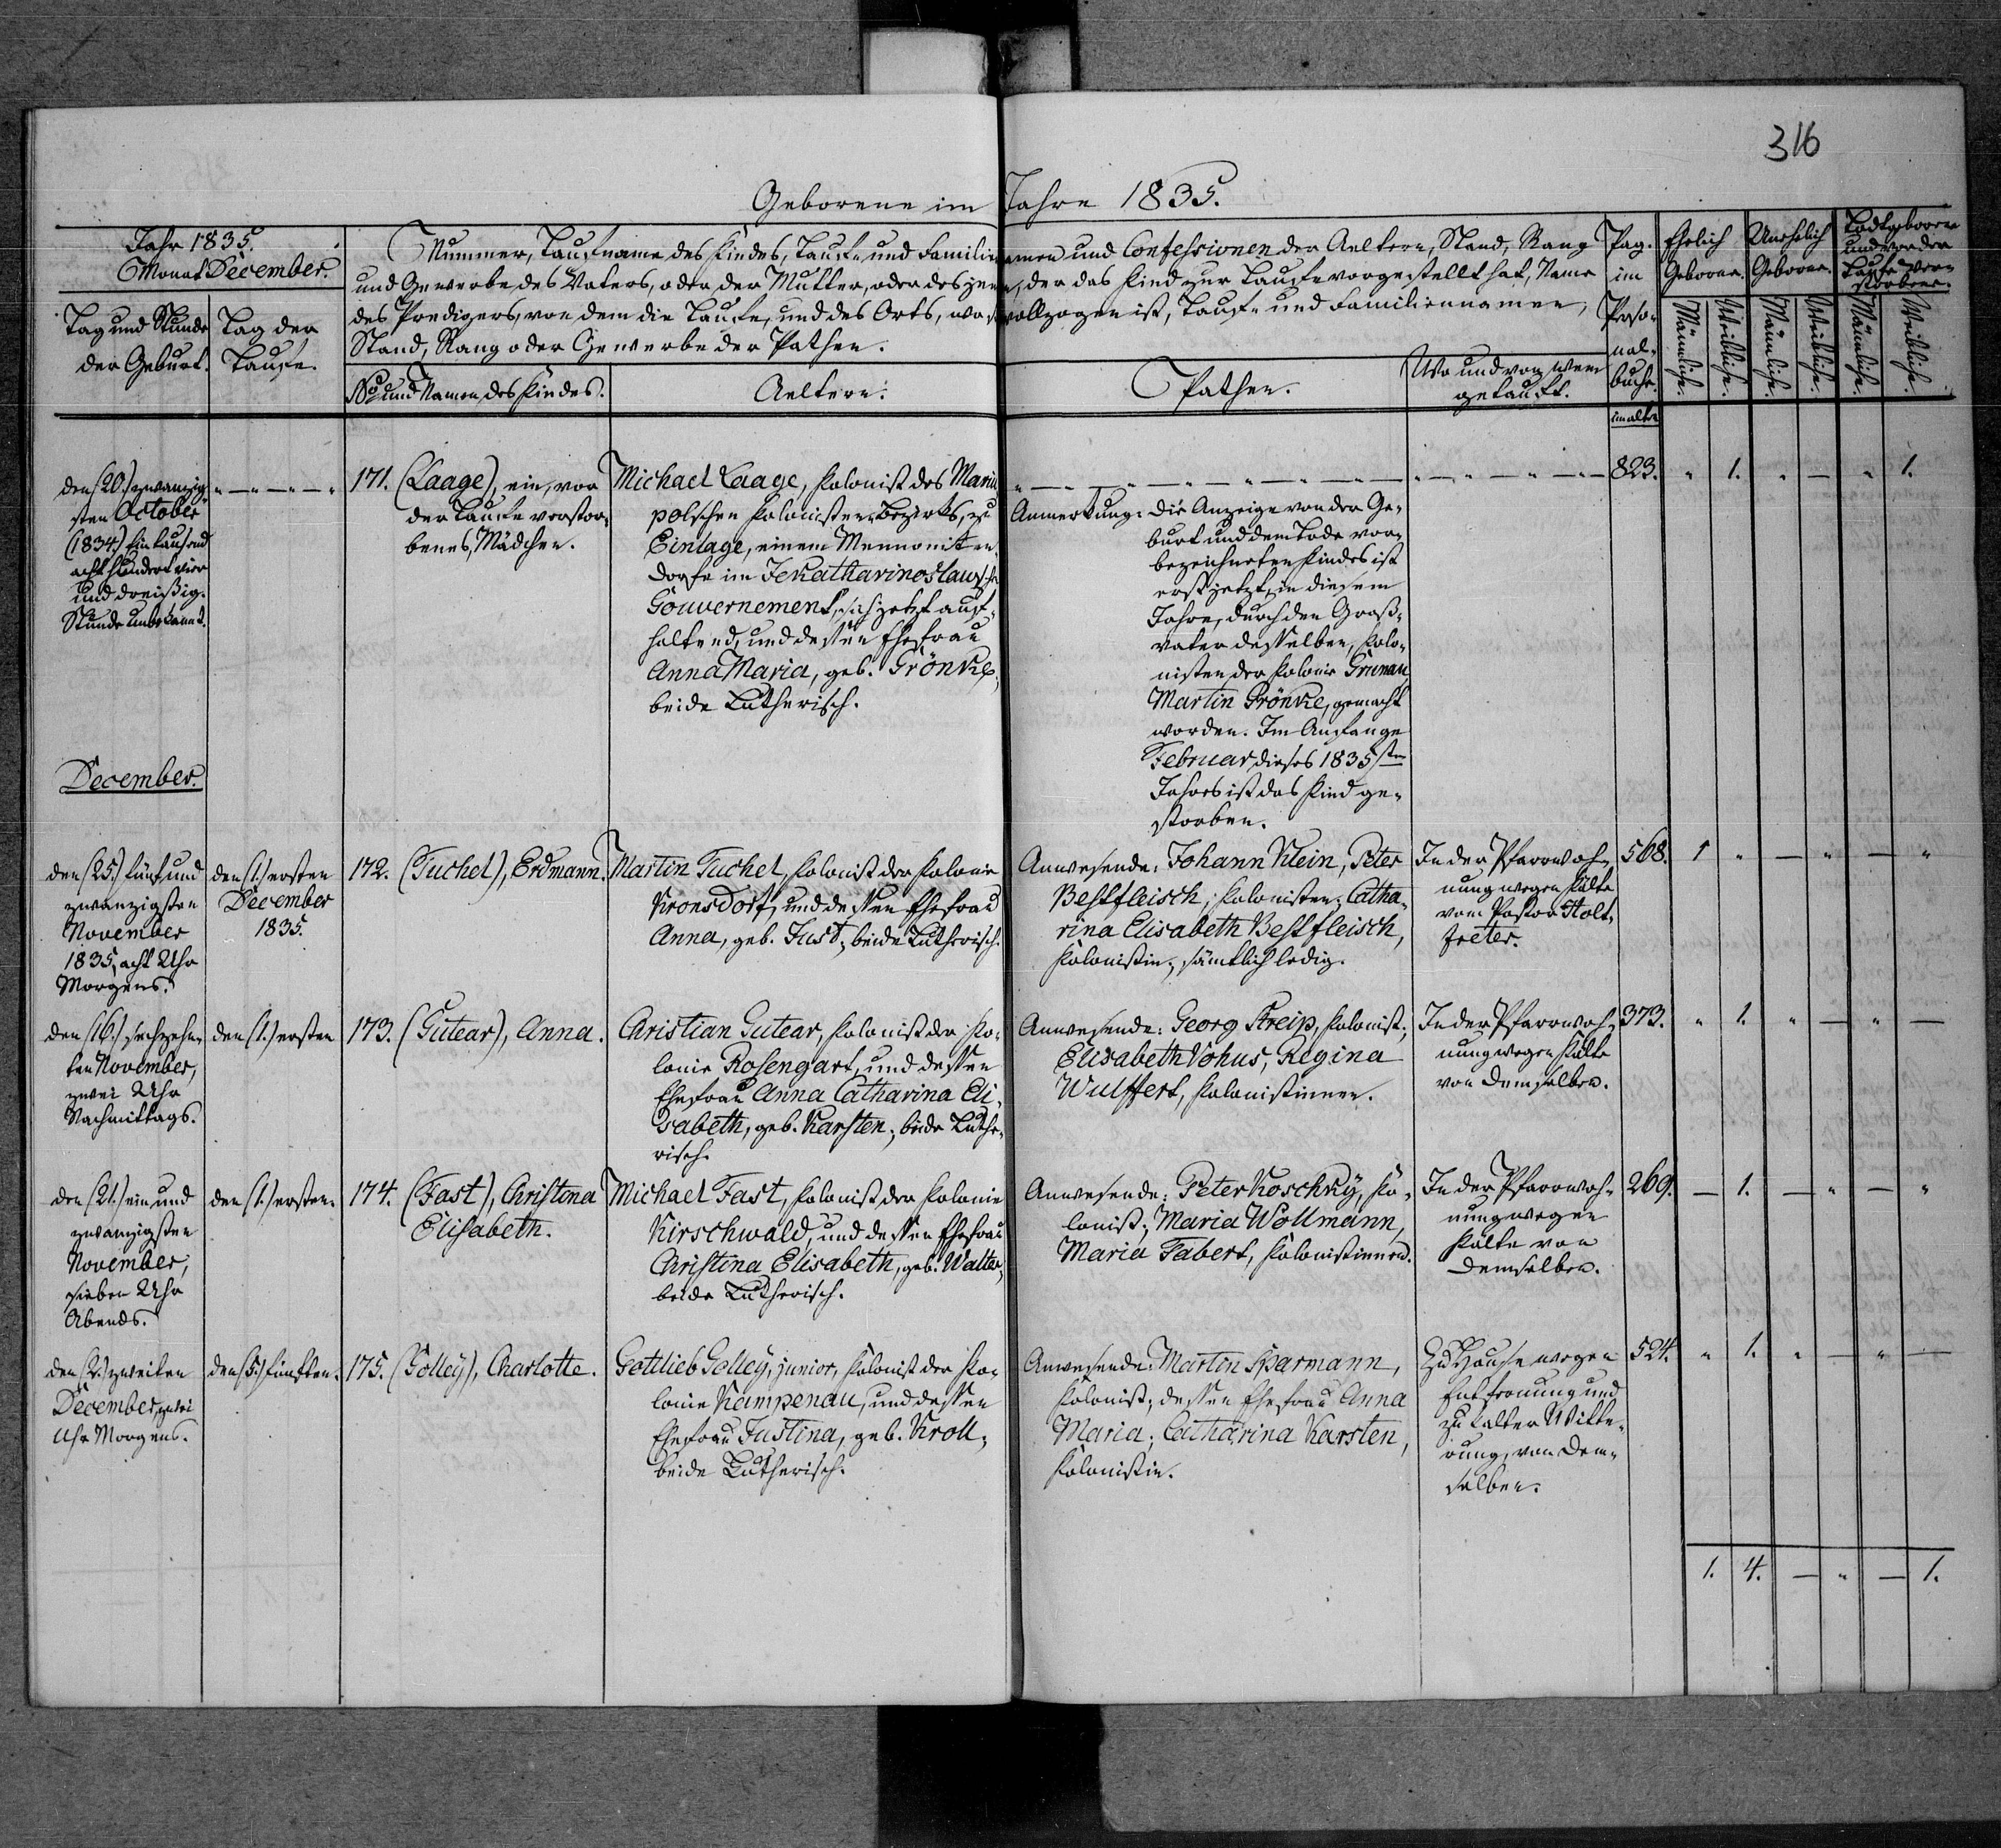 316
Geborene im Jahre 1835.
Jahr 1835.
Monat December.
Tag und Stunde
der Geburt.
Tag der
Taufe.
Nummer, Taufname des Kindes, Tauf- und Familiennamen und Confessionen der Aeltern, Stand, Rang
und Gewerbe des Vaters, oder der Mutter, oder des jenen, der das Kind zur Taufe vorgestellt hat, Name
des Predigers, von dem die Taufe, und des Orts, wo sie vollzogen ist, Tauf- und Familiennamen,
Stand, Rang oder Gewerbe der Pathen.
No und Namen des Kindes.
Aeltern.
Pathen.
Wo und von wem
getauft.
Pag.
im
Perso-
nal-
buche.
Ehelich
Geborne.
Unehelich
Geborne.
Todtgeboren
und vor der
Taufe Ver-
storbene.
Männliche.
Weibliche.
Männliche.
Weibliche.
Männliche.
Weibliche.
im alten
den (20.) zwanzig-
sten October
(1834.) Eintausend
acht hundert vier
und dreißig.
Stunde unbekannt.
" — " — " — "
171. (Laage), ein, vor
der Taufe verstor-
benes, Mädchen.
Michael Laage, Kolonist des Mariu
polschen Kolonisten-Bezirks, zu
Einlage, einem Mennoniten-
dorfe im Jekatharinoslawsch
Gouvernement, sich jetzt auf-
haltend, und dessen Ehefrau
Anna Maria, geb. Grönke,
beide Lutherisch.
" — — " — " — " — " — " —
Anmerkung: Die Anzeige von der Ge-
burt und dem Tode vor-
bezeichneten Kindes ist
erst jetzt, in diesem
Jahre, durch den Groß-
vater desselben, Kolo-
nisten der Kolonie Grunau
Martin Grönke, gemacht
worden. Im Anfange
Februar, dieses 1835sten
Jahres ist das Kind ge-
storben.
" — " — " — " —
823. " 1. " — " 1.
December.
den (25.) fünf und
zwanzigsten
November
1835, acht Uhr
Morgens.
den (1.) ersten
December
1835.
172. (Tuchel), Erdmann.
Martin Tuchel, Kolonist der Kolonie
Kronsdorf, und dessen Ehefrau
Anna, geb. Just; beide Lutherisch.
Anwesende: Johann Klein, Peter
Bestfleisch, Kolonisten; Catha-
rina Elisabeth Bestfleisch,
Kolonistin; sämtlich ledig.
In der Pfarrwoh-
nung wegen Kälte
vom Pastor Holt-
freter.
568. 1 " — " — "
den (16.) sechzehn-
ten November,
zwei Uhr
Nachmittags.
den (1.) ersten
173. (Gutear), Anna.
Christian Gutear, Kolonist der Ko-
lonie Rosengart, und dessen
Ehefrau Anna Catharina Eli-
sabeth, geb. Karsten; beide Luthe-
risch.
Anwesende: Georg Streip, Kolonist;
Elisabeth Vohus, Regina
Wulffert, Kolonistinnen.
In der Pfarrwoh-
nung wegen Kälte
von demselben.
373. " 1. " — " —
den (21.) ein und
zwanzigsten
November,
sieben Uhr
Abends.
den (1.) ersten.
174. (Fast), Christina
Elisabeth.
Michael Fast, Kolonist der Kolonie
Kirschwald, und dessen Ehefrau
Christina Elisabeth, geb. Walter,
beide Lutherisch.
Anwesende: Peter Koschky, Ko-
lonist; Maria Wollmann,
Maria Tabert, Kolonistinnen.
In der Pfarrwoh-
nung wegen
Kälte von
demselben.
269. — 1. — " — "
den (2.) zweiten
December, zwei
Uhr Morgens.
den (5.) fünften.
175. (Golley), Charlotte.
Gottlieb Golley, junior, Kolonist der Ko-
lonie Kampenau, und dessen
Ehefrau Justina, geb. Kroll;
beide Lutherisch.
Anwesende: Martin Sparmann,
Kolonist; dessen Ehefrau Anna
Maria; Catharina Karsten,
Kolonistin.
Zu Hause wegen
Entfernung und
zu kalter Witte-
rung, von dem-
selben.
524. " 1. " — " —
1. 4. — " — 1.